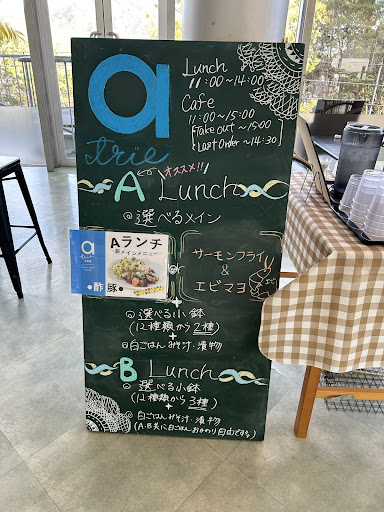 a
trie
Lunch
11:00~14:00
Cafe
11:00~15:00
Take out ~15:00
Last order ~14:30
オススメ!!
A Lunch
◎選べるメイン
a
trie
Aランチ
新メインメニュー
•酢豚•
or
サーモンフライ
&
エビマヨ
+
◎選べる小鉢
(12種類から2種)
+
◎白ごはん みそ汁・漬物
B Lunch
◎選べる小鉢
(12種類から3種)
+
白ごはん みそ汁・漬物
(A・B共に白ごはんおかわり自由です)